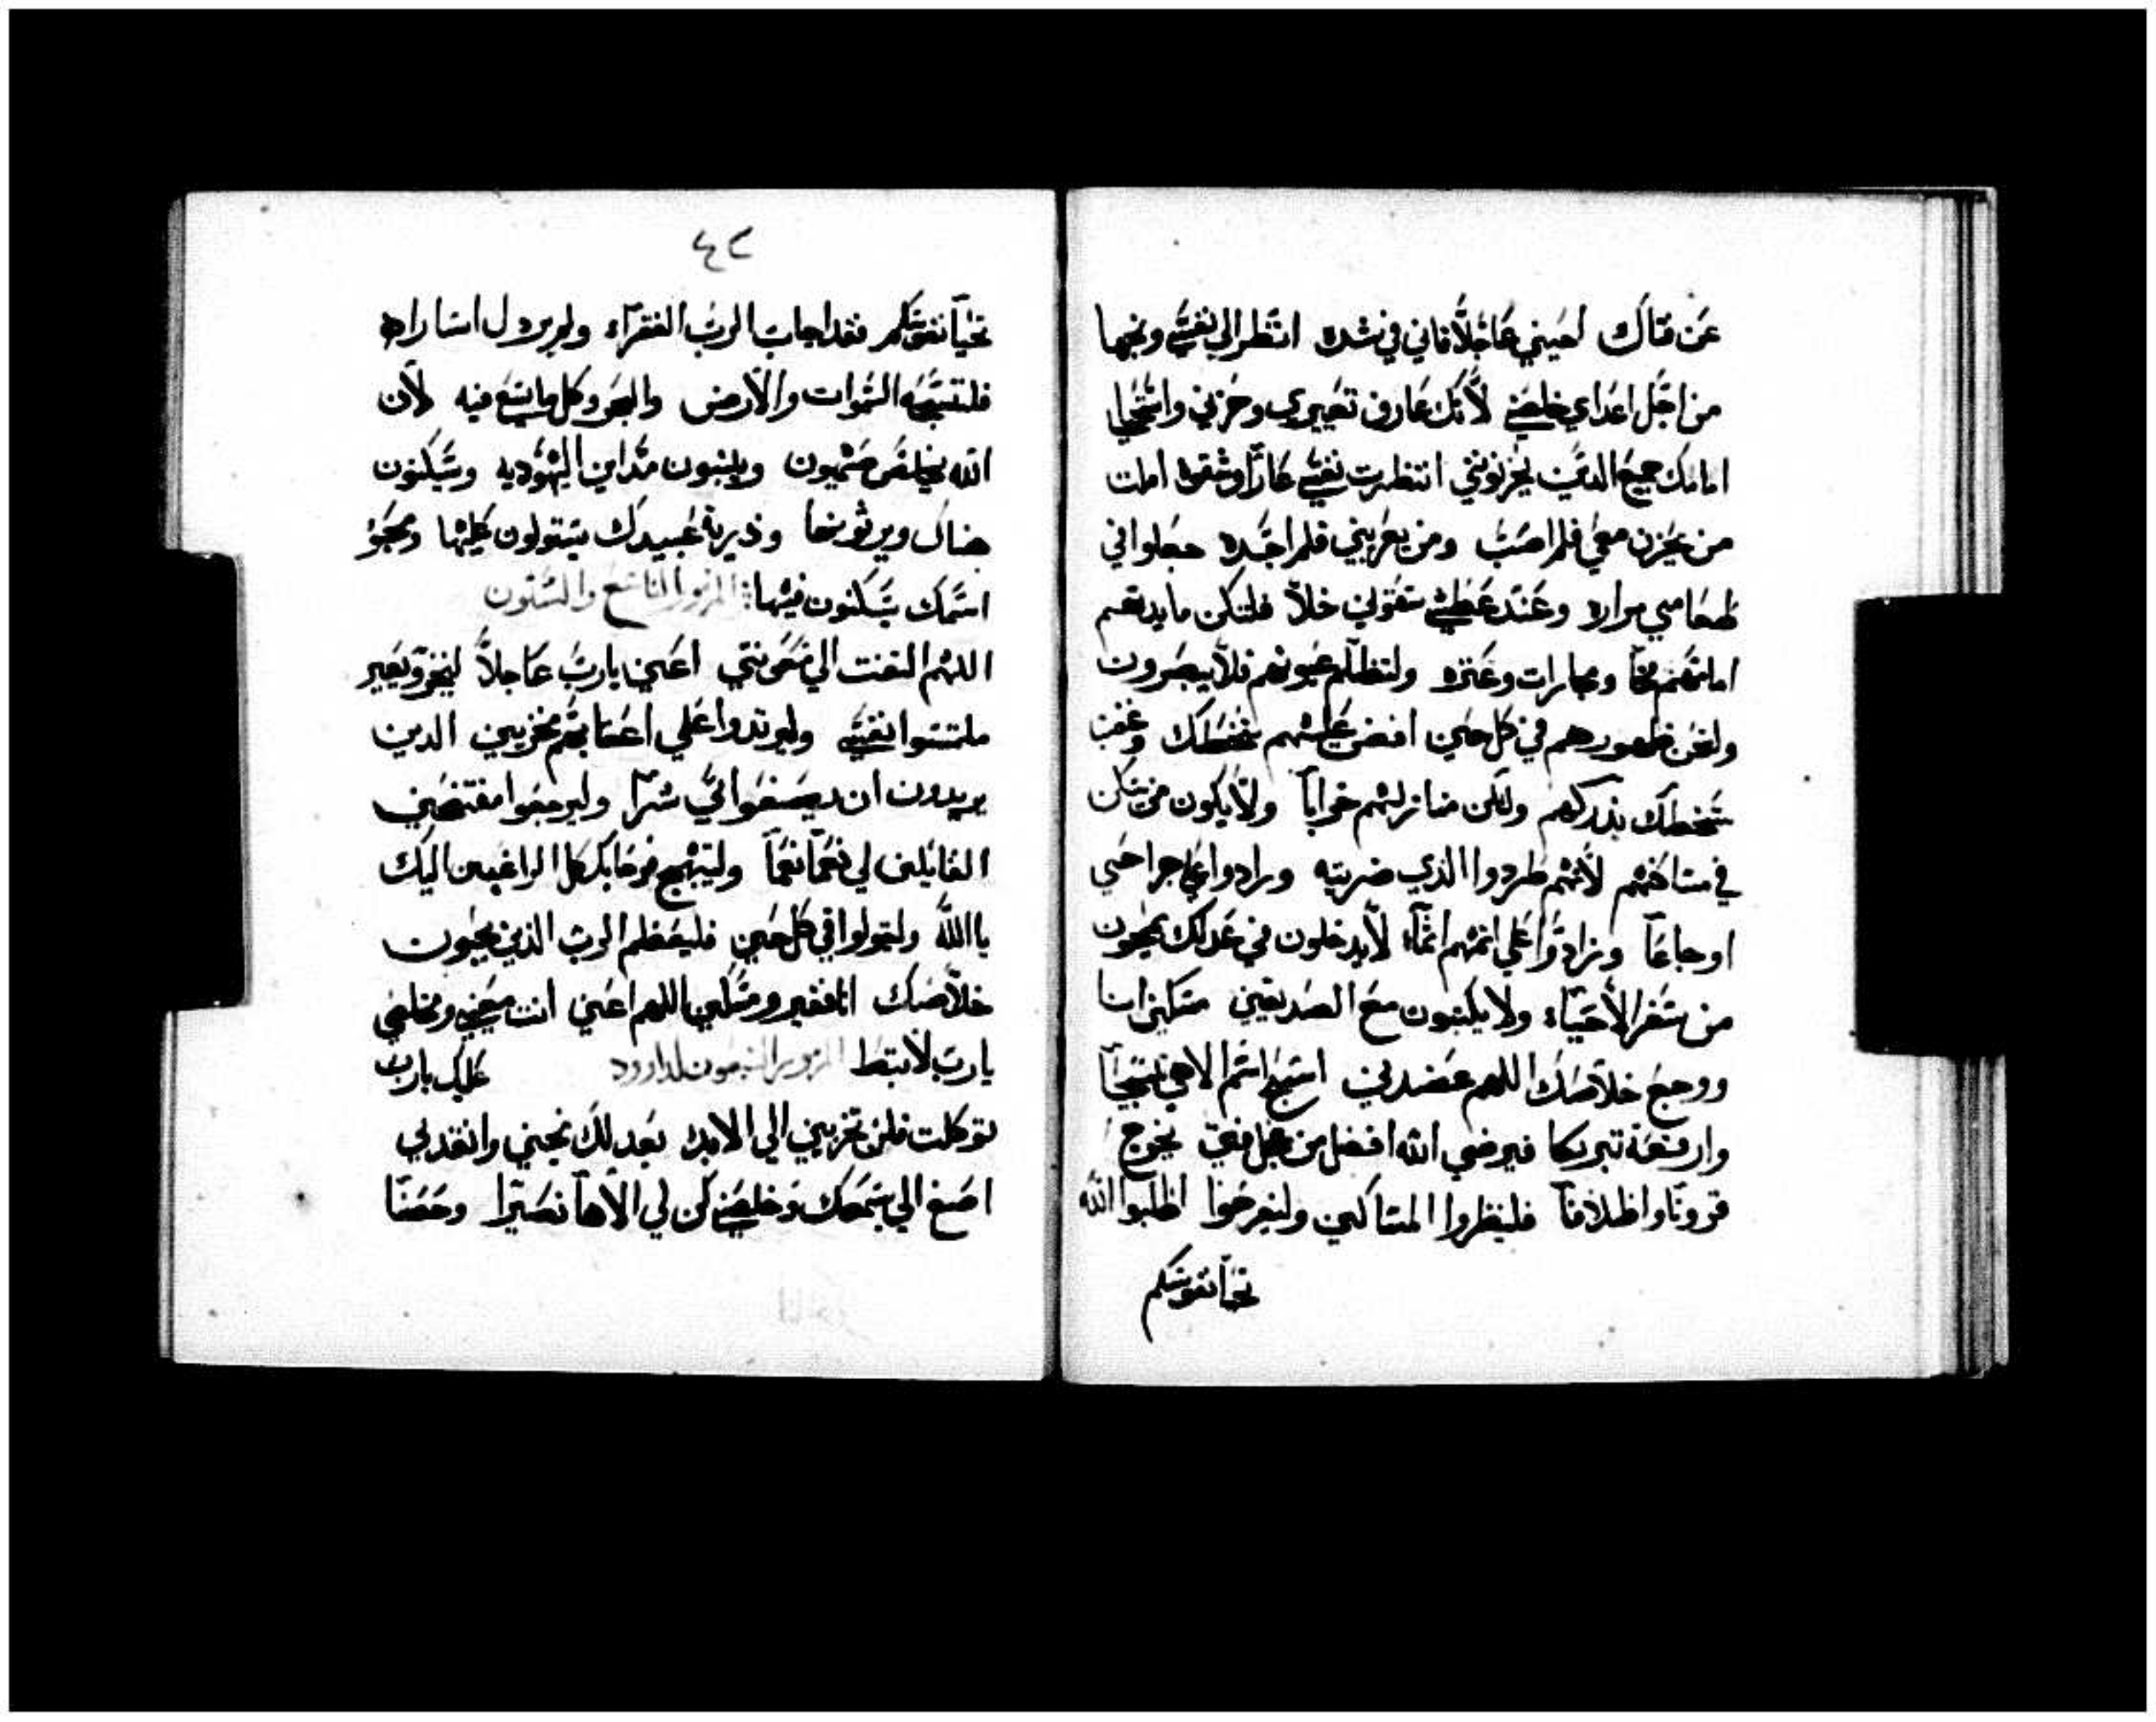 عن فتاك اجيبني عاجلاً فاني في شده انظر الي نفسي ونجها
من اجل اعداي خلصني لأنك عارف تعييري وحزني وانتحيا
امامك جميع الدين يحزنونني انتظرت نفسي عاراً وشقوه املت
من يحزن معي فلم اصب ومن يعزيني فلم اجده جعلوا في
طعامي مراره وعند عطشي سقوني خلاً فلتكن مايدتهم
امامهم فخاً ومجازات وعثره ولتظلم عيونهم فلا يبصرون
ولتحن ظهورهم في كل حين افض عليهم سخطك وغضب
سخطك يدركهم ولتكن منازلهم خراباً ولا يكون من يسكن
في مساكنهم لأنهم طردوا الذي ضربته وزادوا علي جراحتي
اوجاعاً وزادوا علي اثمهم اثماً لا يدخلون في عدلك يمحون
من سفر الأحياء ولا يكتبون مع الصديقين مسكين انا
ووجع خلاصك اللهم عضدني اسبح اسم الاهي تسبيحاً
وارفعه تبريكا فيرضي الله افضل من عجل فتي يخرج
قروناً واظلافاً فلينظروا المساكين وليفرحوا اطلبوا الله
تحيا نفوسكم
٤٢
تحيا نفوسكم فقد اجاب الرب الفقراء ولم يردل اساراه
فلتسبحه السموات والأرض والبحر وكل ما يسع فيه لأن
الله يخلص صهيون ويبنون مداين اليهوديه ويسكنون
هناك ويرثونها وذرية عبيدك يستولون عليها ومحبو
اسمك يسكنون فيها المزمور التاسع والستون
اللهم التفت الي معونتي اعني يارب عاجلاً ليخزو يعير
ملتمسوا نفسي وليرتدوا علي اعقابهم مخزيين الدين
يريدون ان يصنعوا بي شراً وليرجعوا مفتضحين
القايلين لي نعماً نعماً وليبتهج فرحا بك كل الراغبين اليك
ياالله وليقولوا في كل حين فليعظم الرب الذين يحبون
خلاصك انا فقير ومسكين اللهم اعني انت معيني ومخلصي
يارب لا تبطا المزمور السبعون لداوود عليك يارب
توكلت فلن تخزيني الي الابد بعدلك نجيني وانقدني
اصغ الي بسمعك وخلصني كن لي الاهاً نصيراً وحصناً